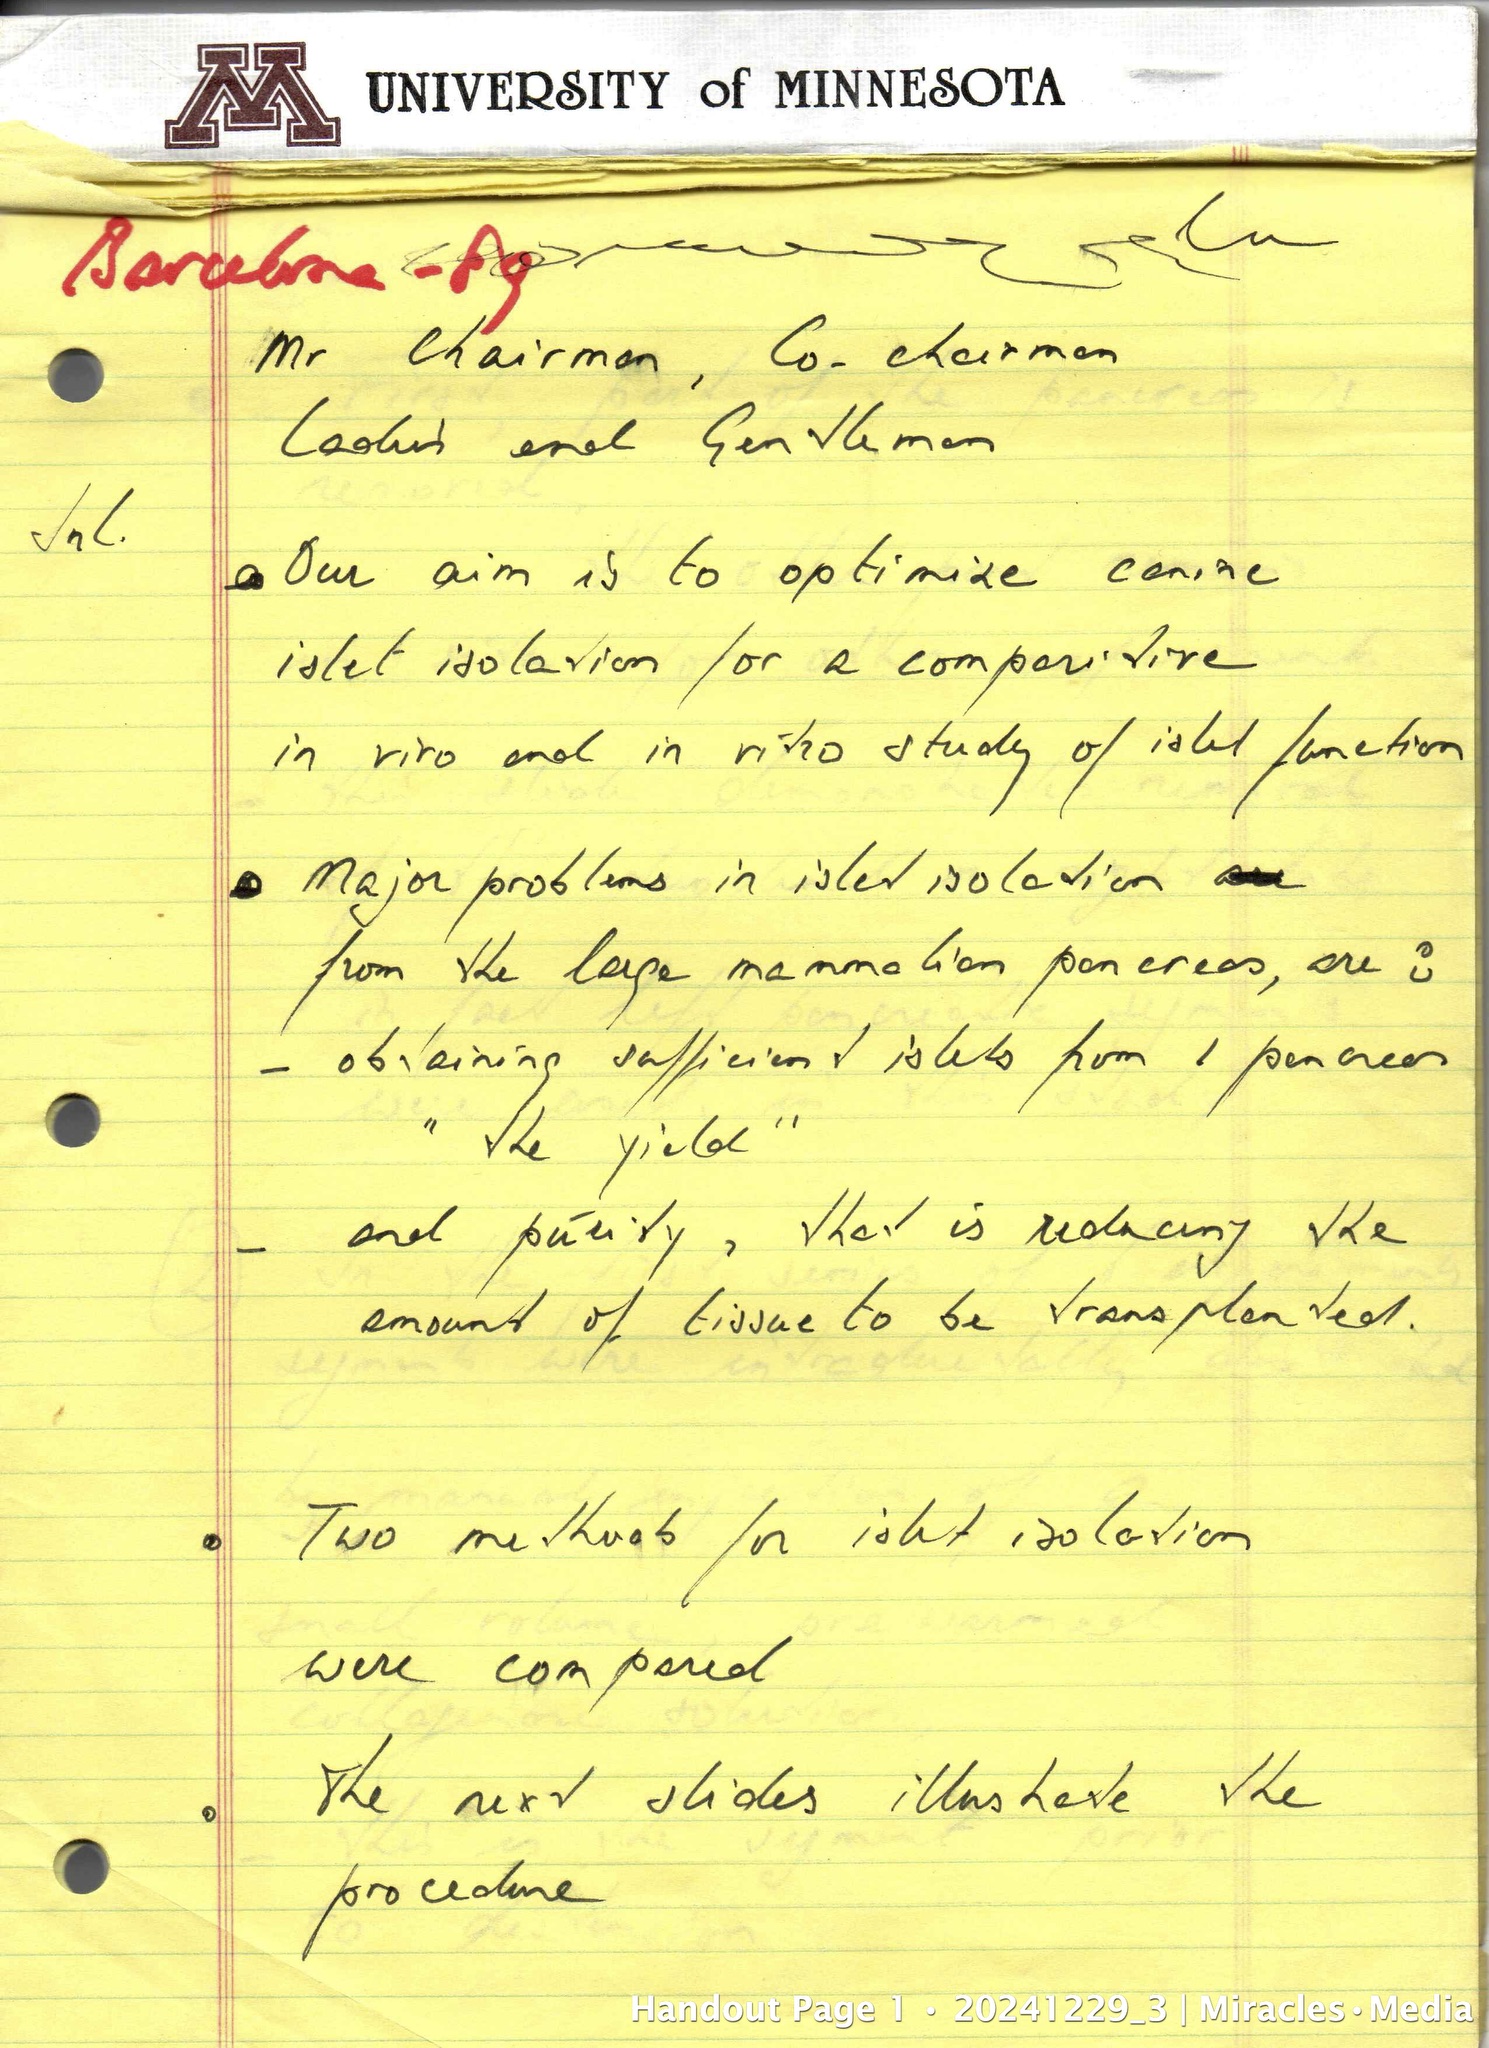 UNIVERSITY of MINNESOTA
Barcelona - 89
Mr Chairman, Co-chairman
Ladies and Gentleman
Int.
Our aim is to optimize canine
islet isolation for a comparitive
in vivo and in vitro study of islet function
Major problems in islet isolation
from the large mammalian pancreas, are :
- obtaining sufficient islets from 1 pancreas
"the yield"
- and purity, that is reducing the
amount of tissue to be transplanted.
Two methods for islet isolation
were compared
The next slides illustrate the
procedure
Handout Page 1 • 20241229_3 | Miracles•Media